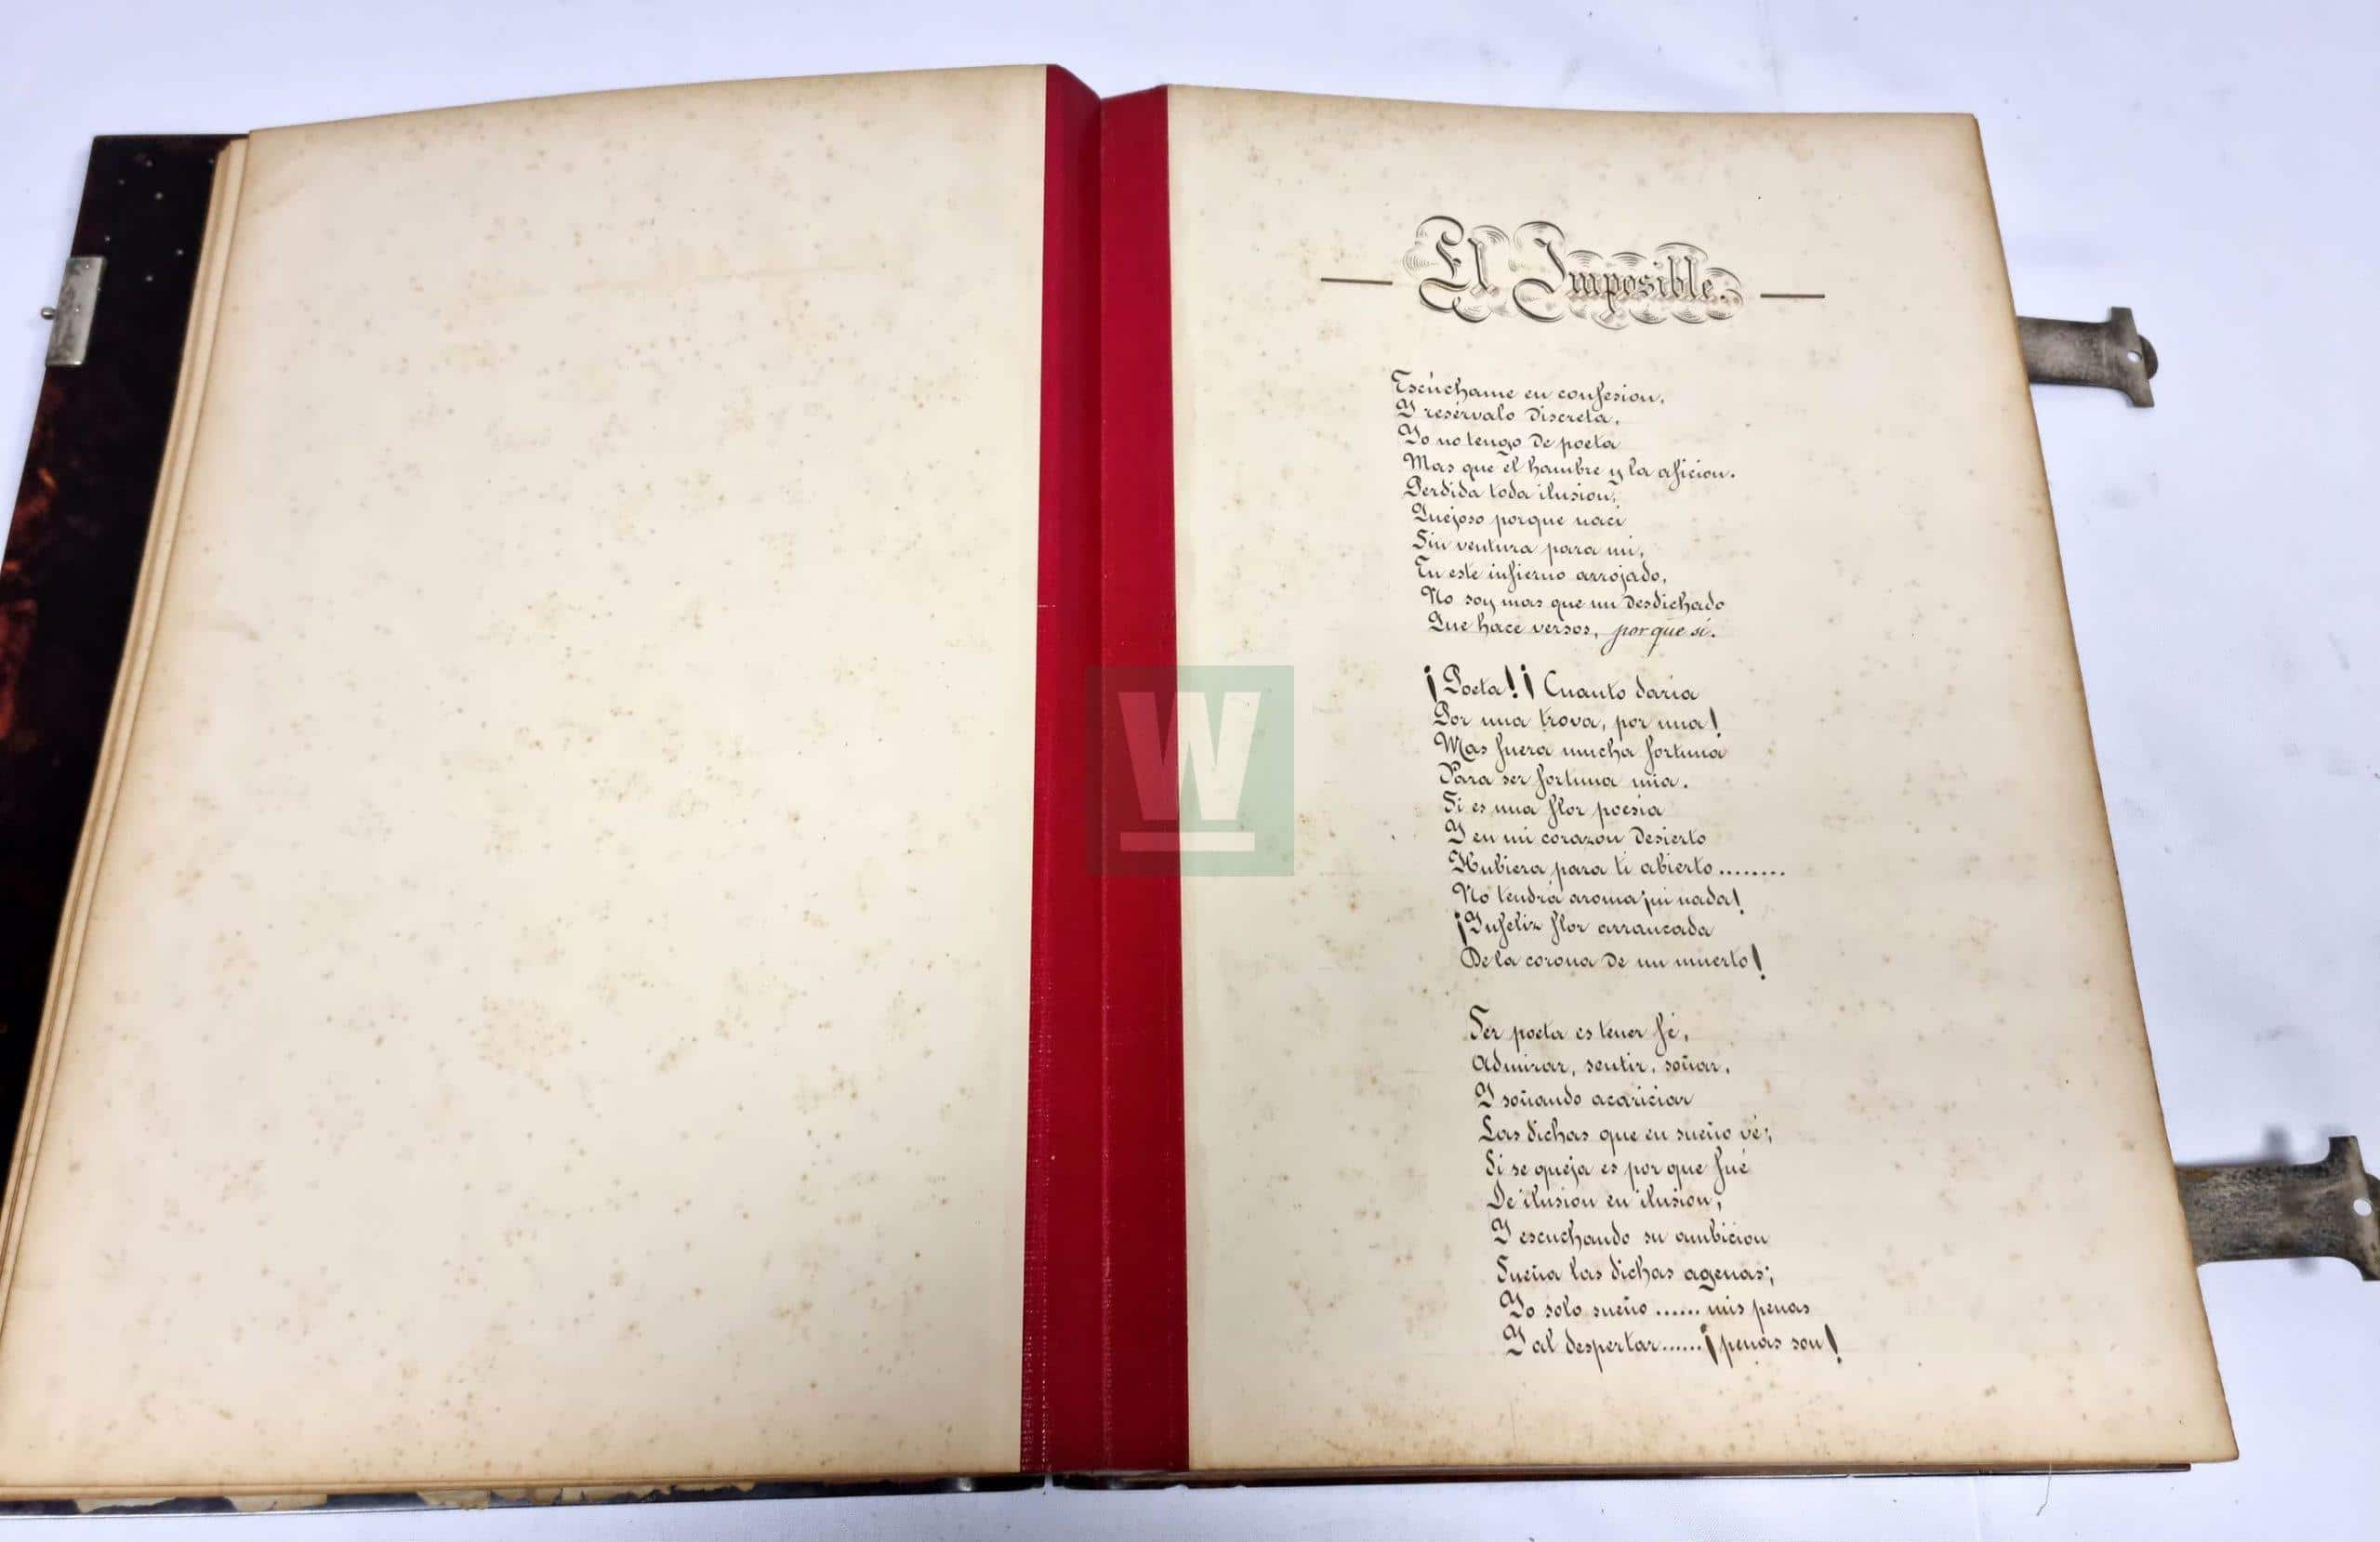 El Imposible.
Escúchame en confesion,
Y resérvalo discreta,
Yo no tengo de poeta
Mas que el hambre y la aficion.
Perdida toda ilusion,
Quejoso porque nací
Sin ventura para mi,
En este infierno arrojado,
No soy mas que un desdichado
Que hace versos, porque si.
¡Poeta! ¡Cuanto daria
Por una trova, por una!
Mas fuera mucha fortuna
Para ser fortuna mia.
Si es una flor poesia
Y en mi corazon desierto
Hubiera para ti abierto........
No tendrá aroma ¡ni nada!
¡Infeliz flor arrancada
De la corona de un muerto!
Ser poeta es tener fé,
Admirar, sentir, soñar,
Y soñando acariciar
Las dichas que en sueño vé;
Si se queja es por que fué
De ilusion en ilusion;
Y escuchando su ambicion
Sueña las dichas agenas;
Yo solo sueño ...... mis penas
Y al despertar......¡penas son!
W